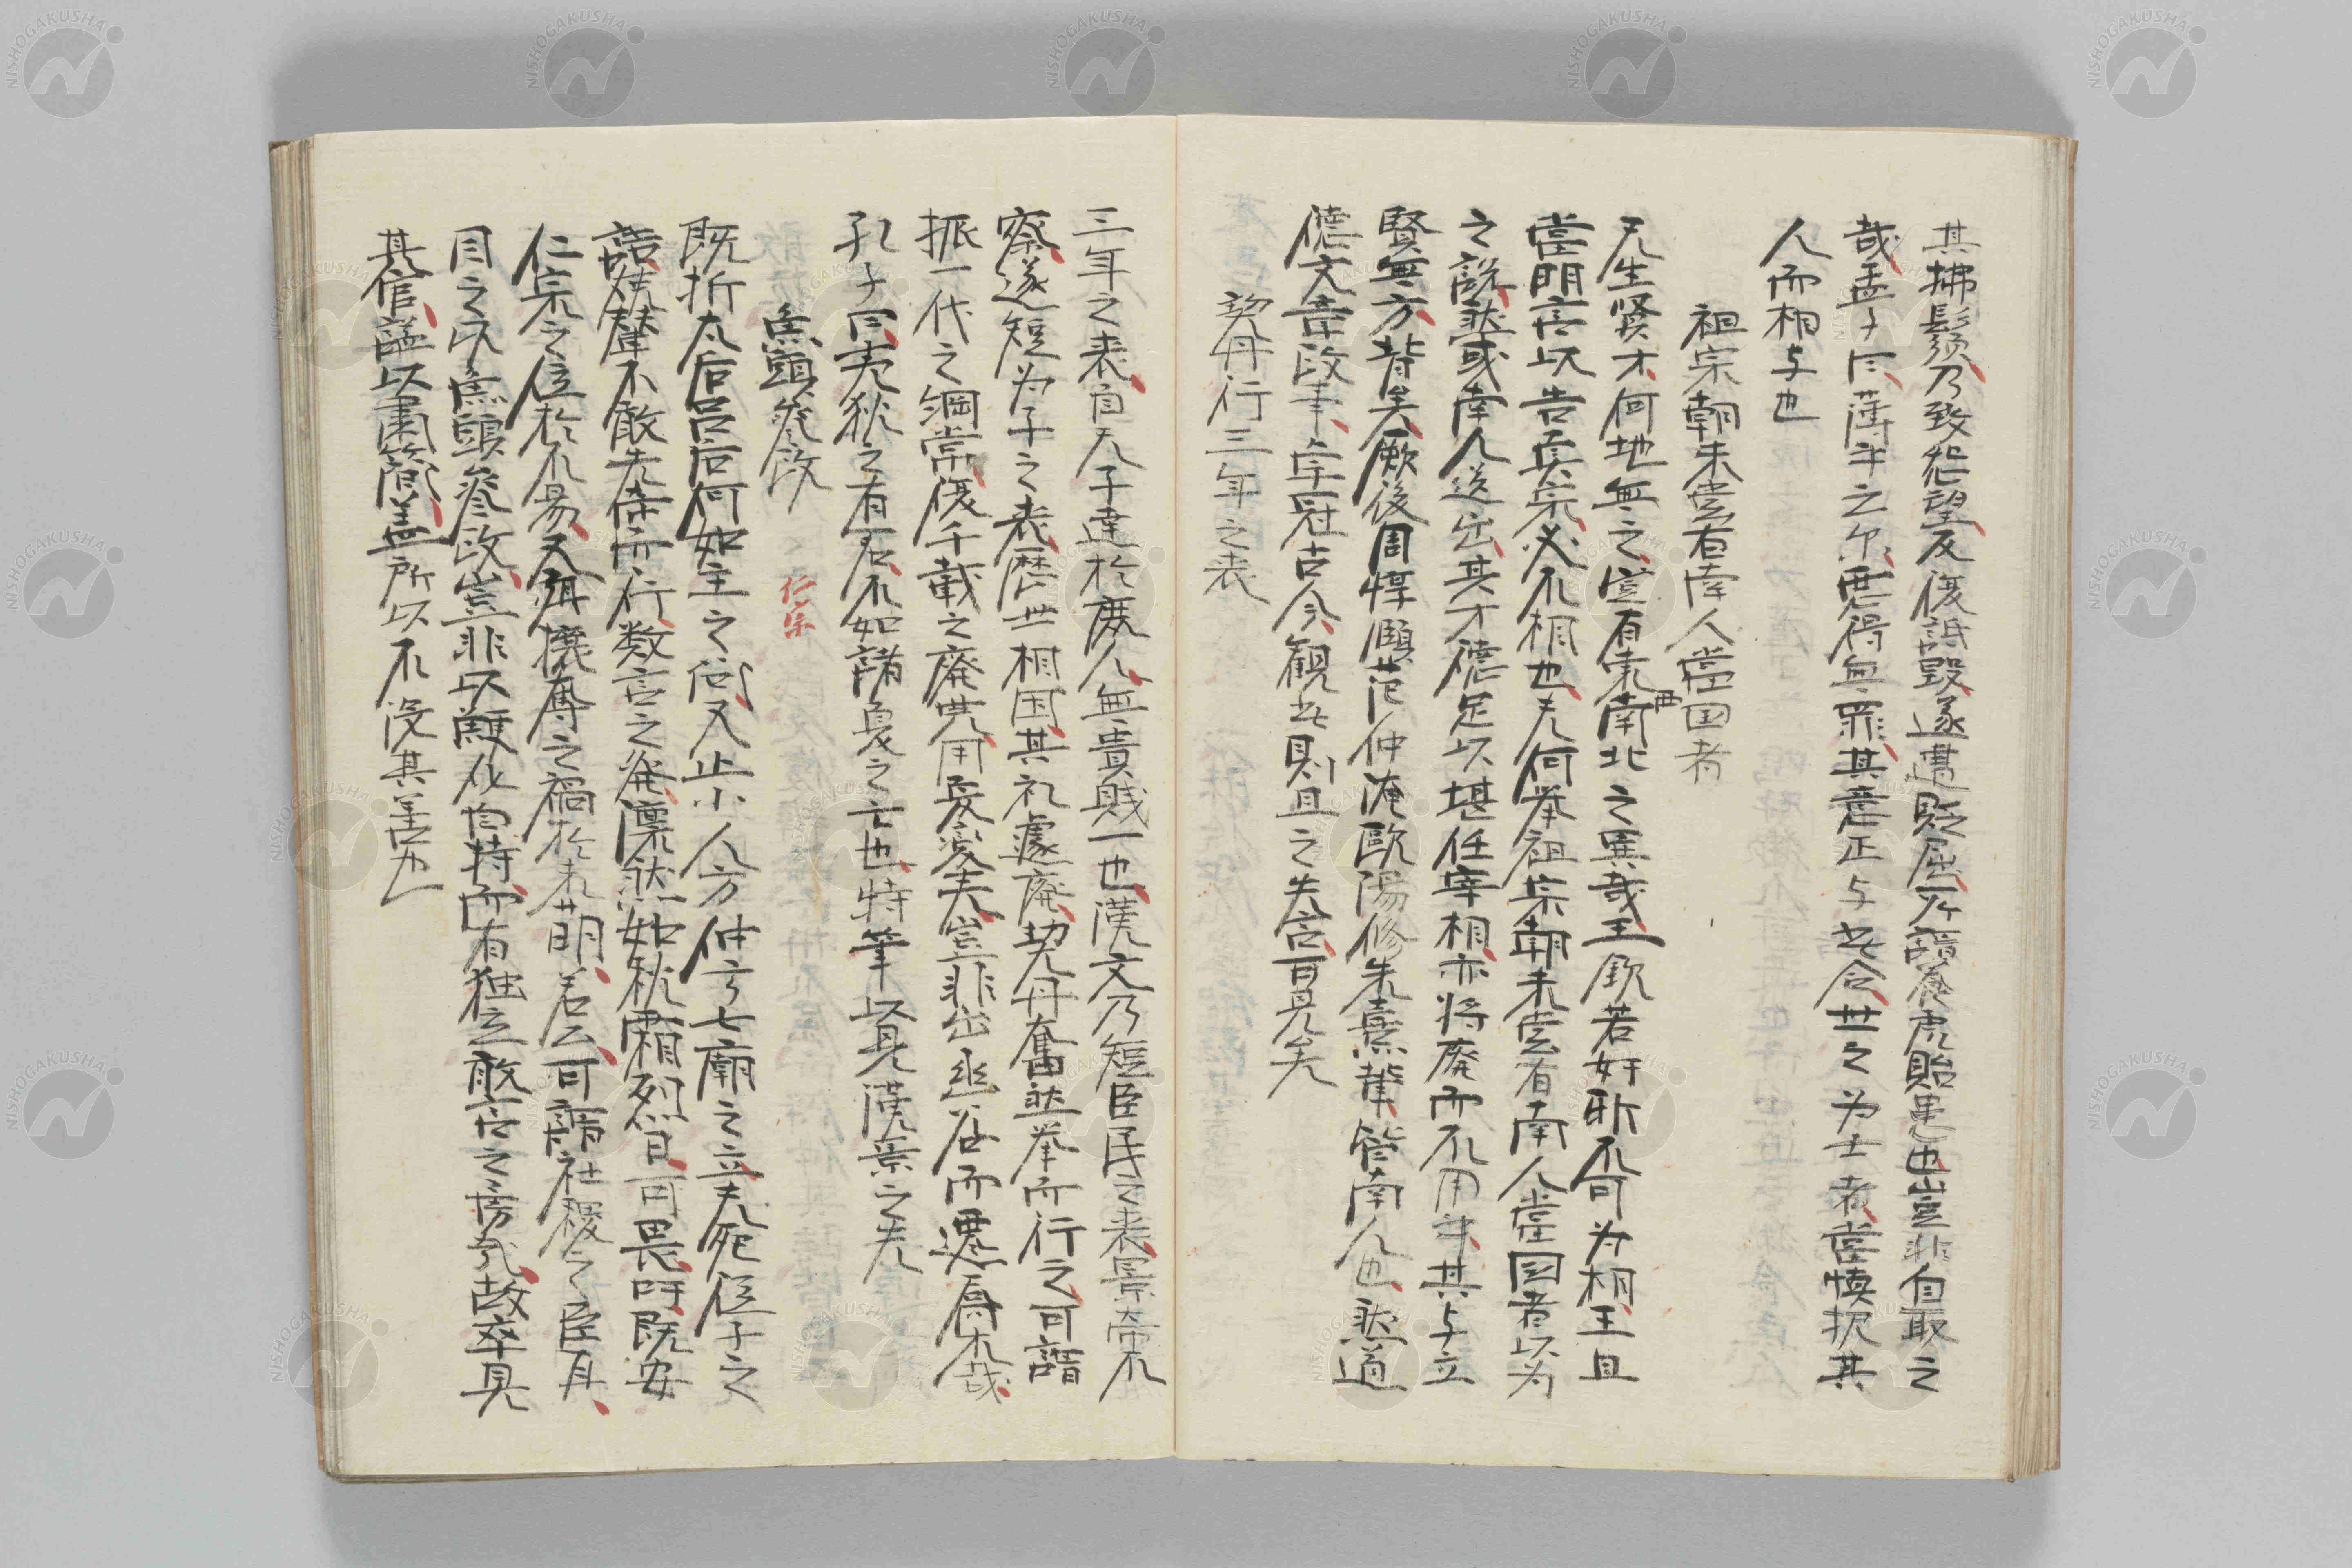 其拂鬚乃致怨望反復詆毀遂遭貶屈所謂養虎貽患也豈非自取之
哉孟子曰薄乎云尔悪得無罪其意正与此合世之为士者當慎択其
人而相与也
祖宗朝未嘗有南人當国者
天生賢才何地無之豈有東西南北之異哉王欽若奸邪不可为相王旦
當明言以告真宗必不相也夫何挙祖宗朝未嘗有南人當国者以为
之説然或南人迭出其才德足以堪任宰相亦将廃而不用乎其与立
賢無方背矣厥後周惇頤范仲淹歐陽修朱熹輩皆南人也然道
德文章政事卓冠古今観此則旦之失言可見矣
契丹行三年之喪
三年之喪自天子達於庶人無貴賎一也漢文乃短臣民之喪景帝不
察遂短为子之喪歴世相因其礼遽廃契丹奮然挙而行之可謂
振一代之綱常復千載之廃典用夏変夫豈非出幽谷而遷喬木哉
孔子曰夷狄之有君不如諸夏之亡也特筆以見漢景之失
魚頭参政 仁宗
既折太后呂后何如主之问又止小人方仲弓七廟之立夫死從子之
語姑輦不敢先帝而行数言之発凛然如秋霜烈日可畏吁既安
仁宗之位於不易又弭機奪之禍於未萌若公可謂社稷之臣耳
目之以魚頭参政豈非以難化自持而有独立敢言之房哉故卒具
其官諡以粛簡盖所以不没其善也